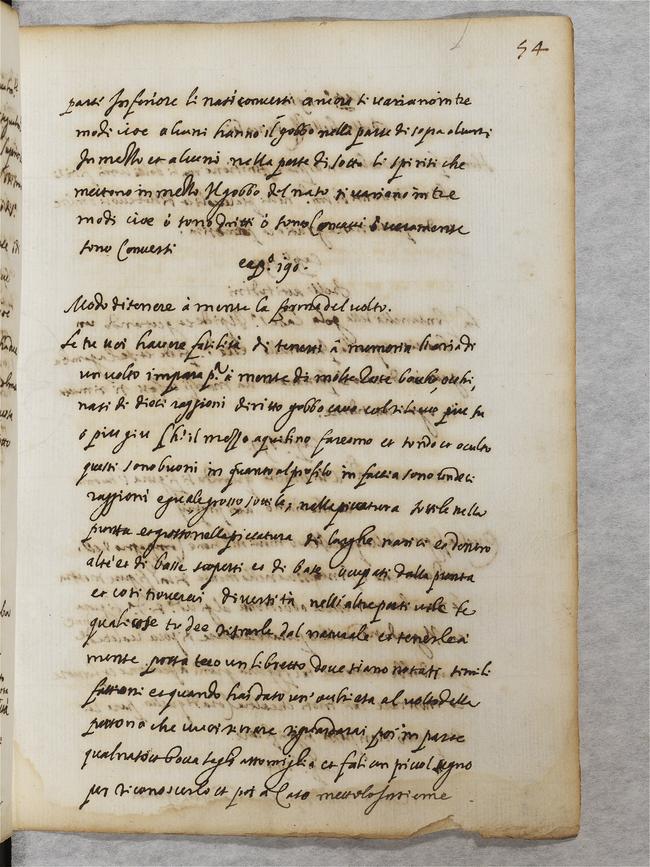 54
parti Inferiore li nasi convessi ancora si variano in tre
modi cioe alcuni hanno il gobbo nella parte di sopra alcuni
In mezzo et alcuni nella parte di sotto li spiriti che
mettono in mezzo Il gobbo del naso si variano in tre
modi cioe ò sono dritti ò sono Concavi ò veramente
sono Convessi
cap.º 190.
Modo di tenere à mente la forma del volto.
Se tu voi havere facilità di tenerti à memoria li aria di
un volto impara pª à mente di molte teste bocche, occhi,
nasi di dieci raggioni diritto gobbo cavo col rilievo piu su
o piu giu che il mezzo aquilino et tondo et
questi sono buoni in quanto al profilo in faccia sono undeci
raggioni eguale grosso sottile, nella piccatura sottile nella
punta et grosso nella piccatura di larghe narici et
alte et di basse scoperti et di base occupati dalla punta
et cosi troverai diversità nelli altre parti
quali cose tu dee ritrarle dal naturale et tenerle à
mente porta teco un libretto dove siano notati simili
fattioni et quando hai dato un'occhieta al volto della
persona che vuoi ritrare riguardarai poi in parte
qual naso et bocca se gli assomiglia et fali un picol segno
per riconoscerlo et poi a Casa mettelo Insieme